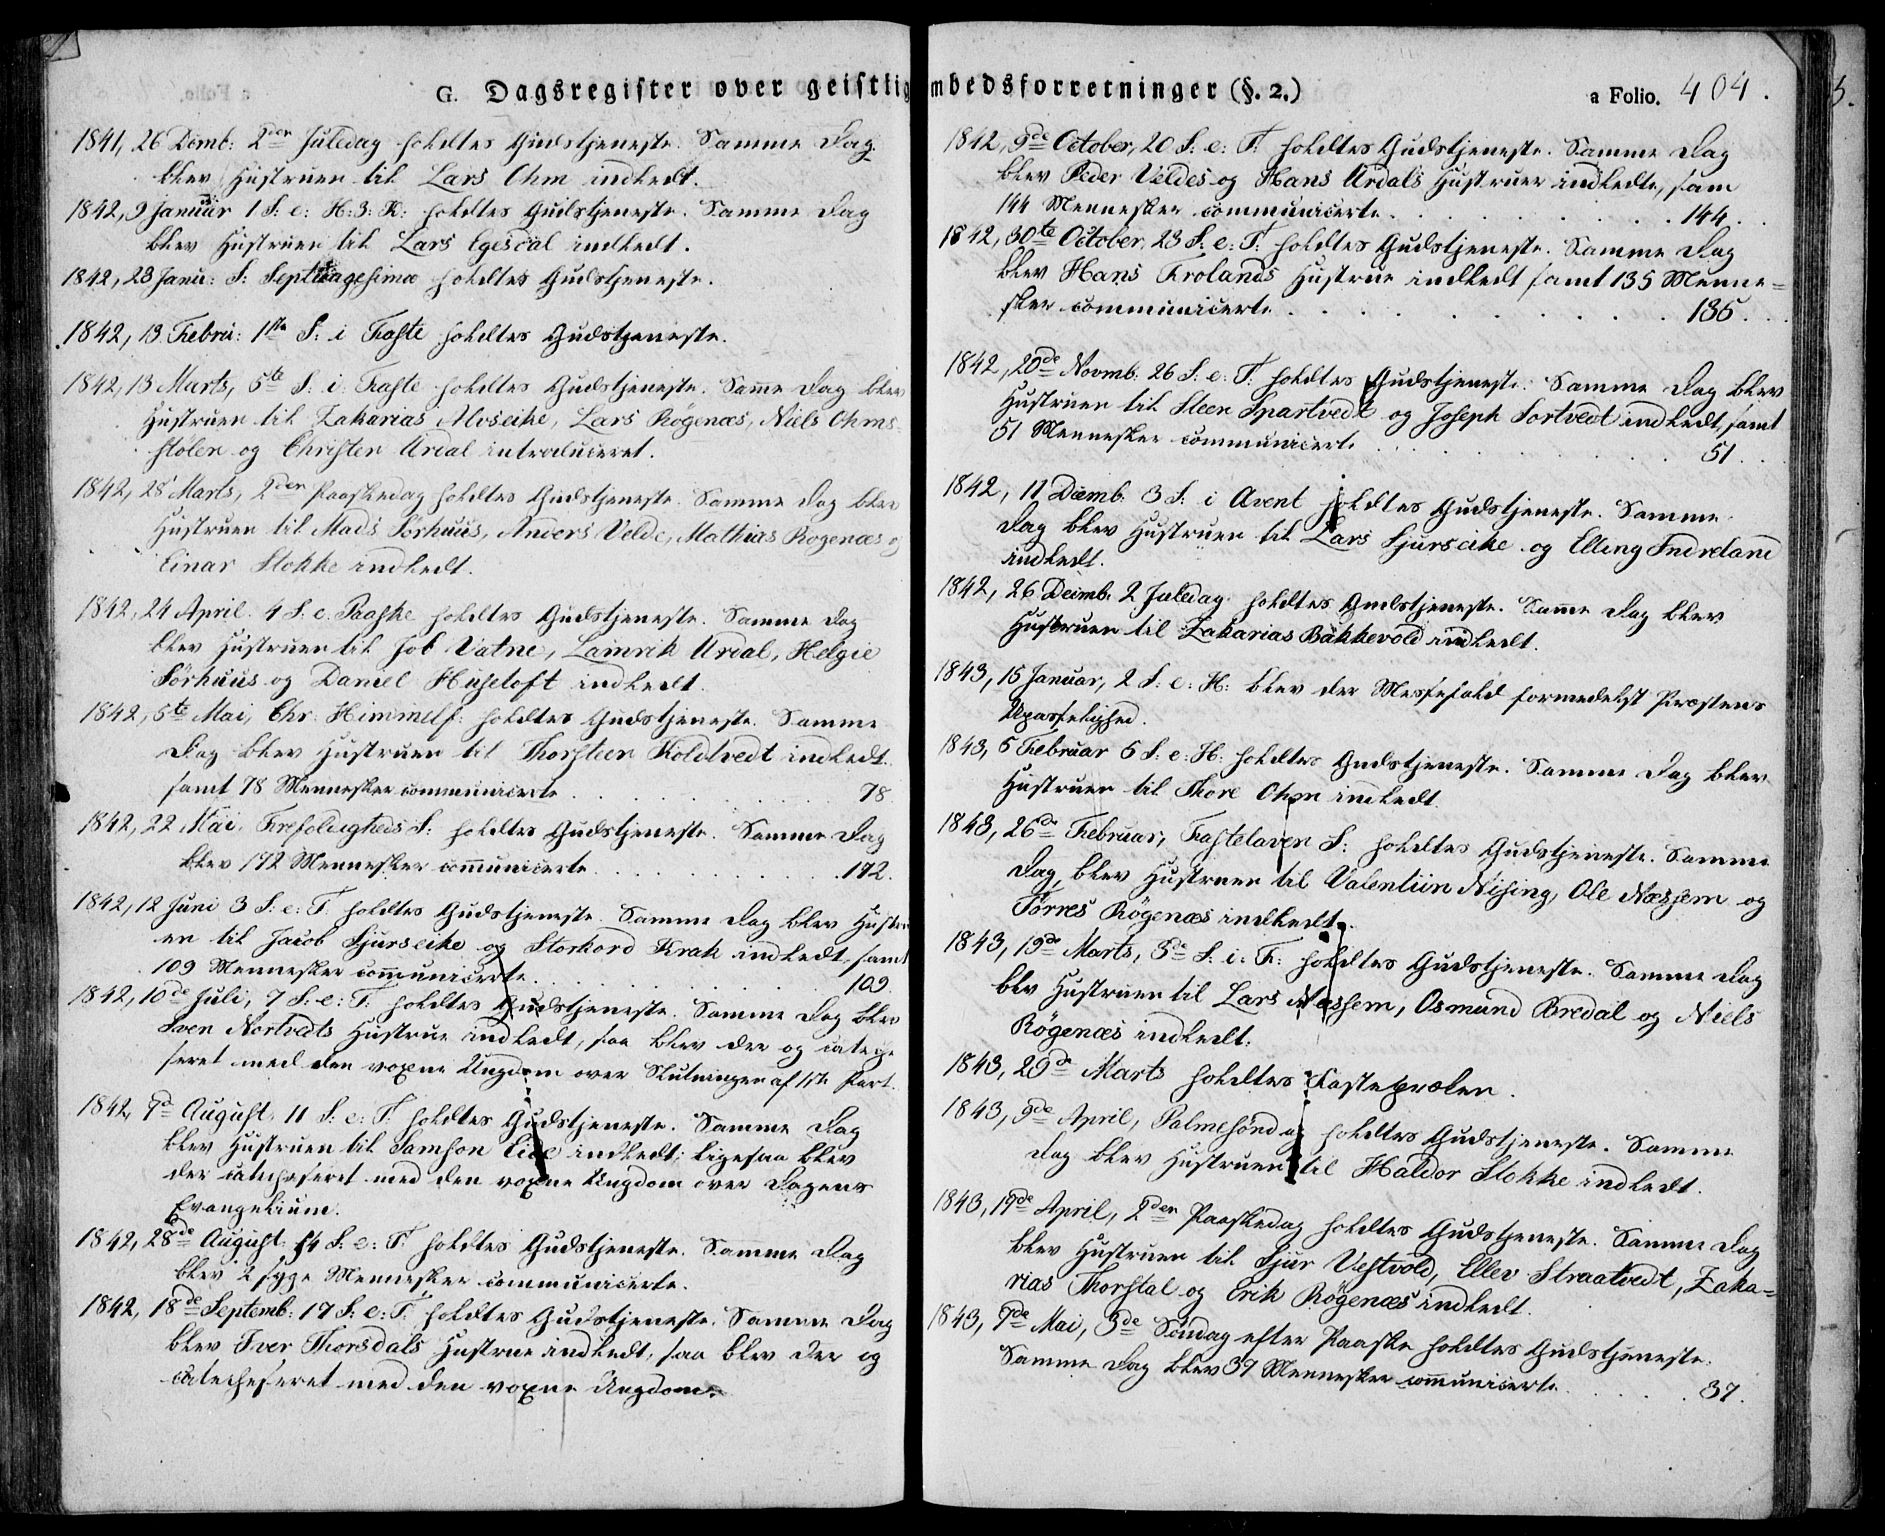 G. Dagsregister over geistlig
1841, 26 Decmb: 2den Juledag holdtes Gudstjeneste. Samme Dag
blev Hustruen til Lars Ohm indledt.
1842, 9 Januar 1 S: e: H: 3: K: holdtes Gudstjeneste. Samme Dag
blev Hustruen til Lars Egesdal indledt.
1842, 23 Janu: S: Septuagesima holdtes Gudstjeneste.
1842, 13 Febru: 1ste S: i Faste holdtes Gudstjeneste.
1842, 13 Marts, 5te S: i Faste holdtes Gudstjeneste. Samme Dag blev
Hustruen til Zakarias Alvseike, Lars Røgenæs, Niels Ohms-
stølen og Christen Urdal introduceret.
1842, 28 Marts, 2den Paaskedag holdtes Gudstjeneste. Samme Dag blev
Hustruen til Mads Sørhuus, Anders Velde, Mathias Rogenæs og
Einar Stokke indledt.
1842, 24 April. 4 S. e. Paaske holdtes Gudstjeneste. Samme Dag
blev Hustruen til Job Vatne, Lamrik Urdal, Helgie
Sørhuus og Daniel Husetoft indledt.
1842, 5te Mai, Chr: Himmelf: holdtes Gudstjeneste. Samme
Dag blev Hustruen til Thorsteen Koldtvedt indledt
samt 78 Mennesker communicerte . . . 78.
1842, 22 Mai, Trefoldigheds S: holdtes Gudstjeneste. Samme Dag
blev 172 Mennesker communicerte . . . 172.
1842, 12 Juni 3 S: e: T: holdtes Gudstjeneste. Samme Dag blev Hustru
en til Jacob Sjurseike og Storkord Krak indledt, samt
109 Mennesker communicerte . . . 109.
1842, 10de Juli, 7 S: e: T: holdtes Gudstjeneste. Samme Dag blev
Sven Nortvedts Hustrue indledt, saa blev der og cateche
seret med den voxne Ungdom over Slutningen af 1ste Part.
1842, 7de August, 11 S: e: T: holdtes Gudstjeneste. Samme Dag
blev Hustruen til Samson Eide indledt; ligesaa blev
der catecheseret med den voxne Ungdom over Dagens
Evangelium.
1842, 28de August: 14 S: e: T: holdtes Gudstjeneste. Samme Dag
blev 2 syge Mennesker communicerte.
1842, 18de Septemb: 17 S: e: T: holdtes Gudstjeneste. Samme Dag
blev Iver Thorsdals Hustrue indledt, saa blev der og
catecheseret med den voxne Ungdom.
mbedsforretninger (§. 2.)
a Folio. 404.
1842, 9de October, 20 S: e: T: holdtes Gudstjeneste. Samme Dag
blev Peder Veldes og Hans Urdals Hustruer indledte, sam
144 Mennesker communicerte . . . 144.
1842, 30te October, 23 S: e: T: holdtes Gudstjeneste. Samme Dag
blev Hans Frolands Hustrue indledt samt 135 Menne=
sker communicerte . . . 135.
1842, 20de Novmb: 26 S: e: T: holdtes Gudstjeneste. Samme Dag blev
Hustruen til Steen Spartvedt og Joseph Sortvedt indledt, samt
51 Mennesker communicerte . . . 51
1842, 11 Decmb: 3 S: i Avent holdtes Gudstjeneste. Samme
Dag blev Hustruen til Lars Sjurseike og Elling Indreland
indledt.
1842, 26 Decmb: 2 Juledag holdtes Gudstjeneste. Samme Dag blev
Hustruen til Zakarias Bækkevold indledt.
1843, 15 Januar, 2 S: e: H: blev der Messefald formedelst Præstens
Upasselighed.
1843, 5 Februar 5 S: e: H: holdtes Gudstjeneste. Samme Dag blev
Hustruen til Thore Ohm indledt.
1843, 26de Februar, Fastelaven S: holdtes Gudstjeneste. Samme
Dag blev Hustruen til Valentiin Nising, Ole Næshem og
Tørres Røgenæs indledt.
1843, 19de Marts, 3de S: i: F: holdtes Gudstjeneste. Samme Dag
blev Hustruen til Lars Næshem, Osmund Bredal og Niels
Røgenæs indledt.
1843, 29de Marts holdtes Fastepræken.
1843, 9de April, Palmesøndag holdtes Gudstjeneste. Samme
Dag blev Hustruen til Haldor Stokke indledt.
1843, 17de April, 2den Paaskedag holdtes Gudstjeneste. Samme Dag
blev Hustruen til Sjur Vestvold, Ellev Straatvedt, Zaka=
rias Thorstal og Erik Røgenæs indledt.
1843, 7de Mai, 3de Søndag efter Paaske holdtes Gudstjeneste.
Samme Dag blev 37 Mennesker communicerte . . . 37.